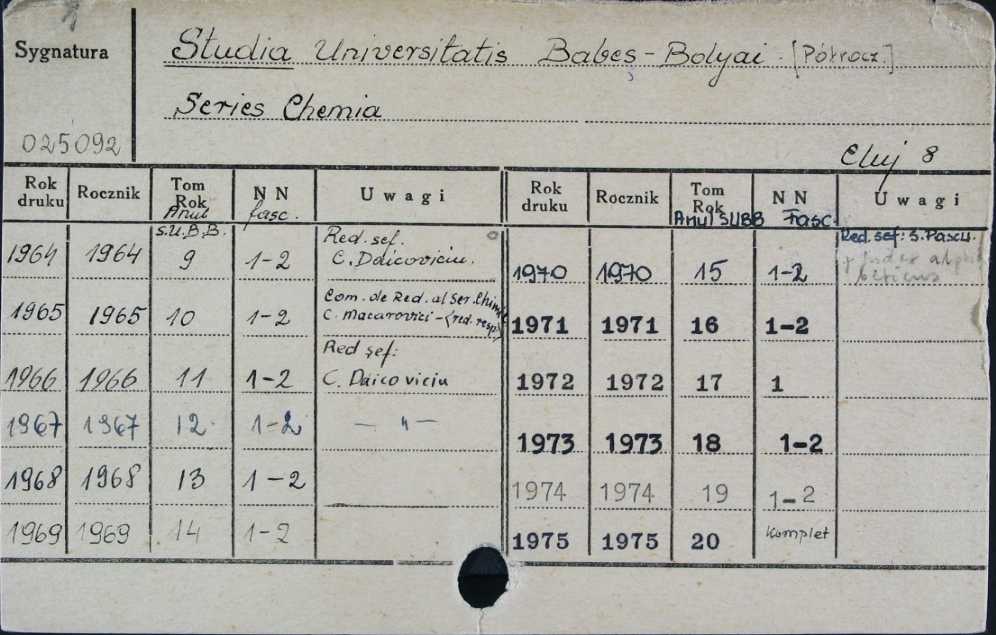 Sygnatura
Studia Universitatis Babeș-Bolyai. [Półrocz.]
Series Chemia
025092
Cluj 8
Rok druku Rocznik Tom Rok Anul S.U.B.B. NN fasc. Uwagi
1964 1964 9 1-2 Red. sef. C. Daicoviciu.
1965 1965 10 1-2 Com. de Red. al Ser. Chimie C. Macarovici - (red. resp.)
1966 1966 11 1-2 Red șef: C. Daicoviciu
1967 1967 12. 1-2 — " —
1968 1968 13 1-2
1969 1969 14 1-2
Rok druku Rocznik Tom Rok Anul SUBB NN Fasc. Uwagi
1970 1970 15 1-2 Red. sef: S. Pascu.
1971 1971 16 1-2
1972 1972 17 1
1973 1973 18 1-2
1974 1974 19 1-2
1975 1975 20 Komplet